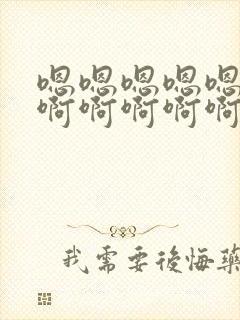 嗯嗯嗯嗯嗯
啊啊啊啊啊
我需要後悔藥